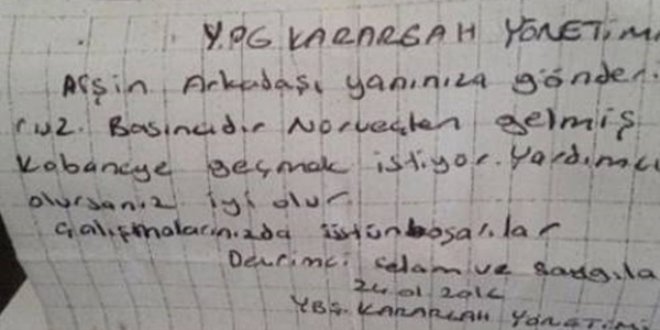 Y.PG KARARGAH YÖNETİMİ
Afşin Arkadaşı yanınıza gönderi
ruz. Basıncıdır Norveçten gelmiş
Kobaneye geçmek istiyor. Yardımcı
olursanız iyi olur
Çalışmalarınızda üstün başarılar
Devrimci selam ve saygıla
24 01 201
YBŞ. KARARGAH YÖNETİMİ